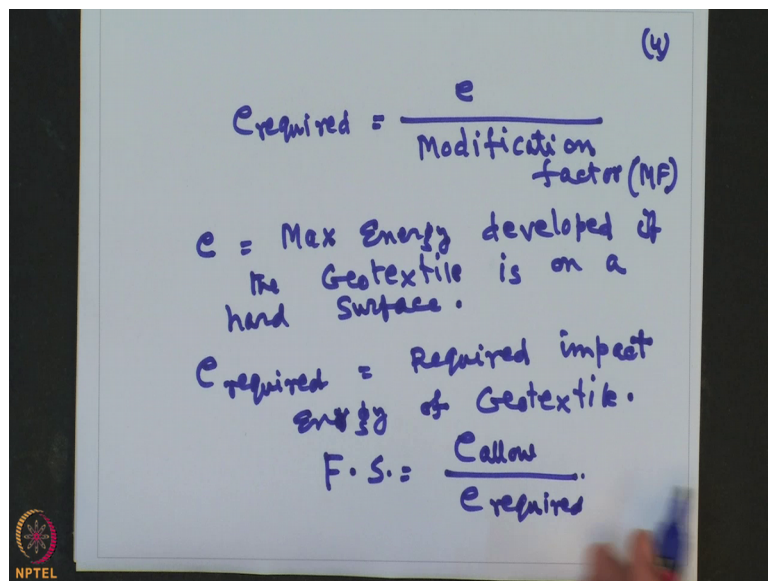 (4)
e required = e / Modification factor (MF)
e = Max Energy developed if
the Geotextile is on a
hard surface.
e required = Required impact
Energy of Geotextile.
F.S. = e allow / e required
NPTEL